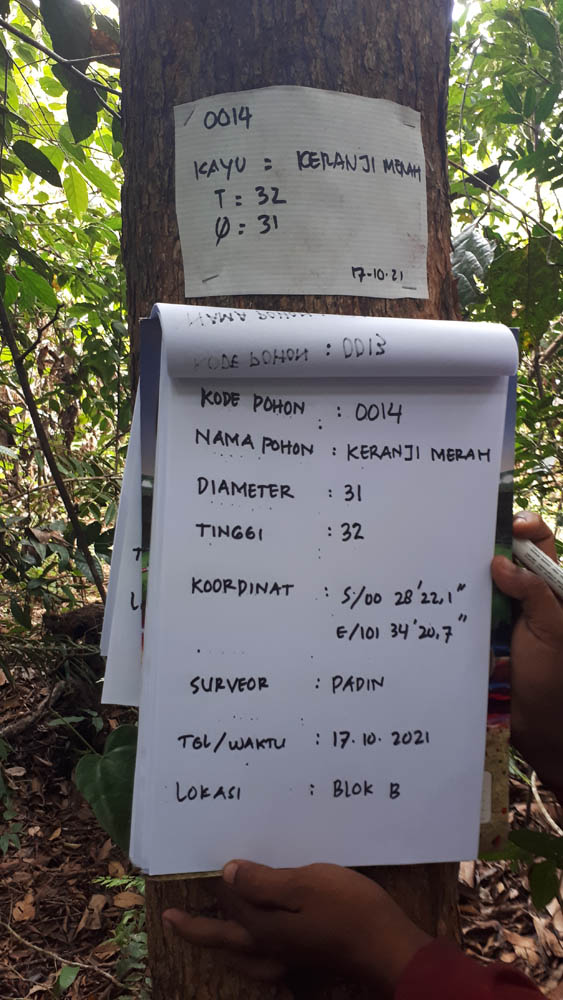 0014
KAYU = KERANJI MERAH
T = 32
φ : 31
17-10-21
NAMA POHON
KODE POHON : 0013
KODE POHON : 0014
NAMA POHON : KERANJI MERAH
DIAMETER : 31
TINGGI : 32
KOORDINAT : S/00 28'22,1"
E/101 34'20,7"
SURVEOR : PADIN
TGL/WAKTU : 17.10.2021
LOKASI : BLOK B